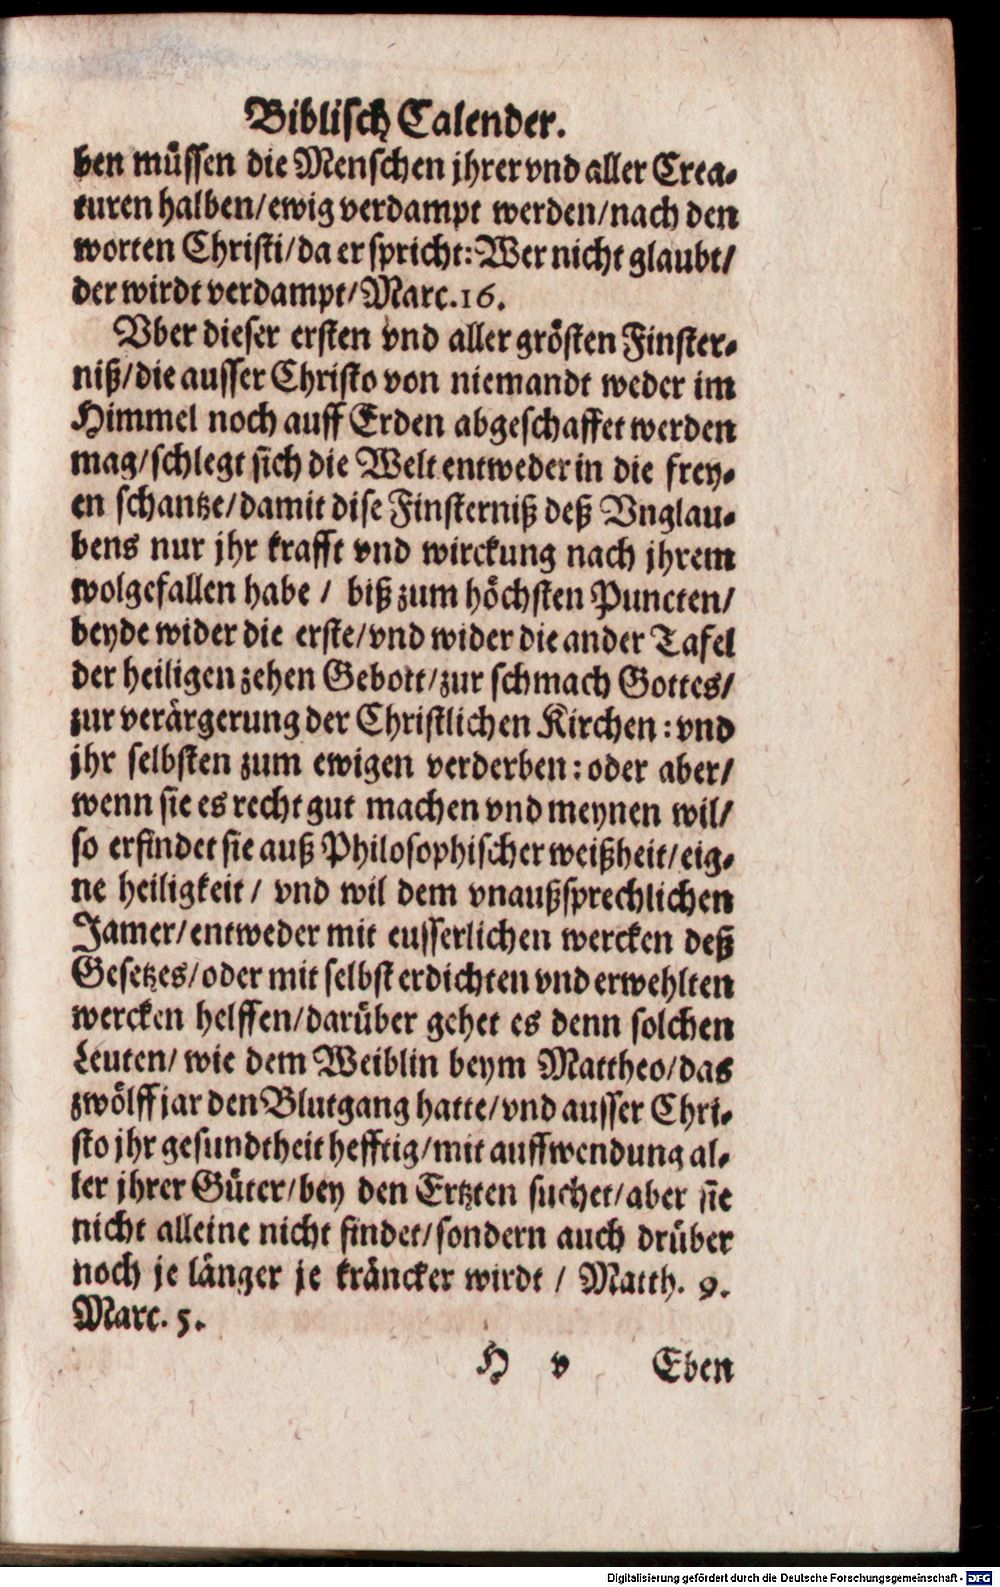 Biblisch Calender.
ben müssen die Menschen jhrer vnd aller Crea-
turen halben/ewig verdampt werden/nach den
worten Christi/da er spricht: Wer nicht glaubt/
der wirdt verdampt/Marc. 16.
Vber dieser ersten vnd aller grösten Finster-
niß/die ausser Christo von niemandt weder im
Himmel noch auff Erden abgeschaffet werden
mag/schlegt sich die Welt entweder in die frey-
en schantze/damit dise Finsterniß deß Vnglau-
bens nur jhr krafft vnd wirckung nach jhrem
wolgefallen habe / biß zum höchsten Puncten/
beyde wider die erste/vnd wider die ander Tafel
der heiligen zehen Gebott/zur schmach Gottes/
zur verärgerung der Christlichen Kirchen: vnd
jhr selbsten zum ewigen verderben: oder aber/
wenn sie es recht gut machen vnd meynen wil/
so erfindet sie auß Philosophischer weißheit/eig-
ne heiligkeit / vnd wil dem vnaußsprechlichen
Jamer/entweder mit eusserlichen wercken deß
Gesetzes/oder mit selbst erdichten vnd erwehlten
wercken helffen/darüber gehet es denn solchen
Leuten/ wie dem Weiblin beym Mattheo/das
zwölff jar den Blutgang hatte/vnd ausser Chri-
sto jhr gesundtheit hefftig/mit auffwendung al-
ler jhrer Güter/bey den Ertzten suchet/aber sie
nicht alleine nicht findet/sondern auch drüber
noch je länger je kräncker wirdt / Matth. 9.
Marc. 5.
H v Eben
Digitalisierung gefördert durch die Deutsche Forschungsgemeinschaft - DFG